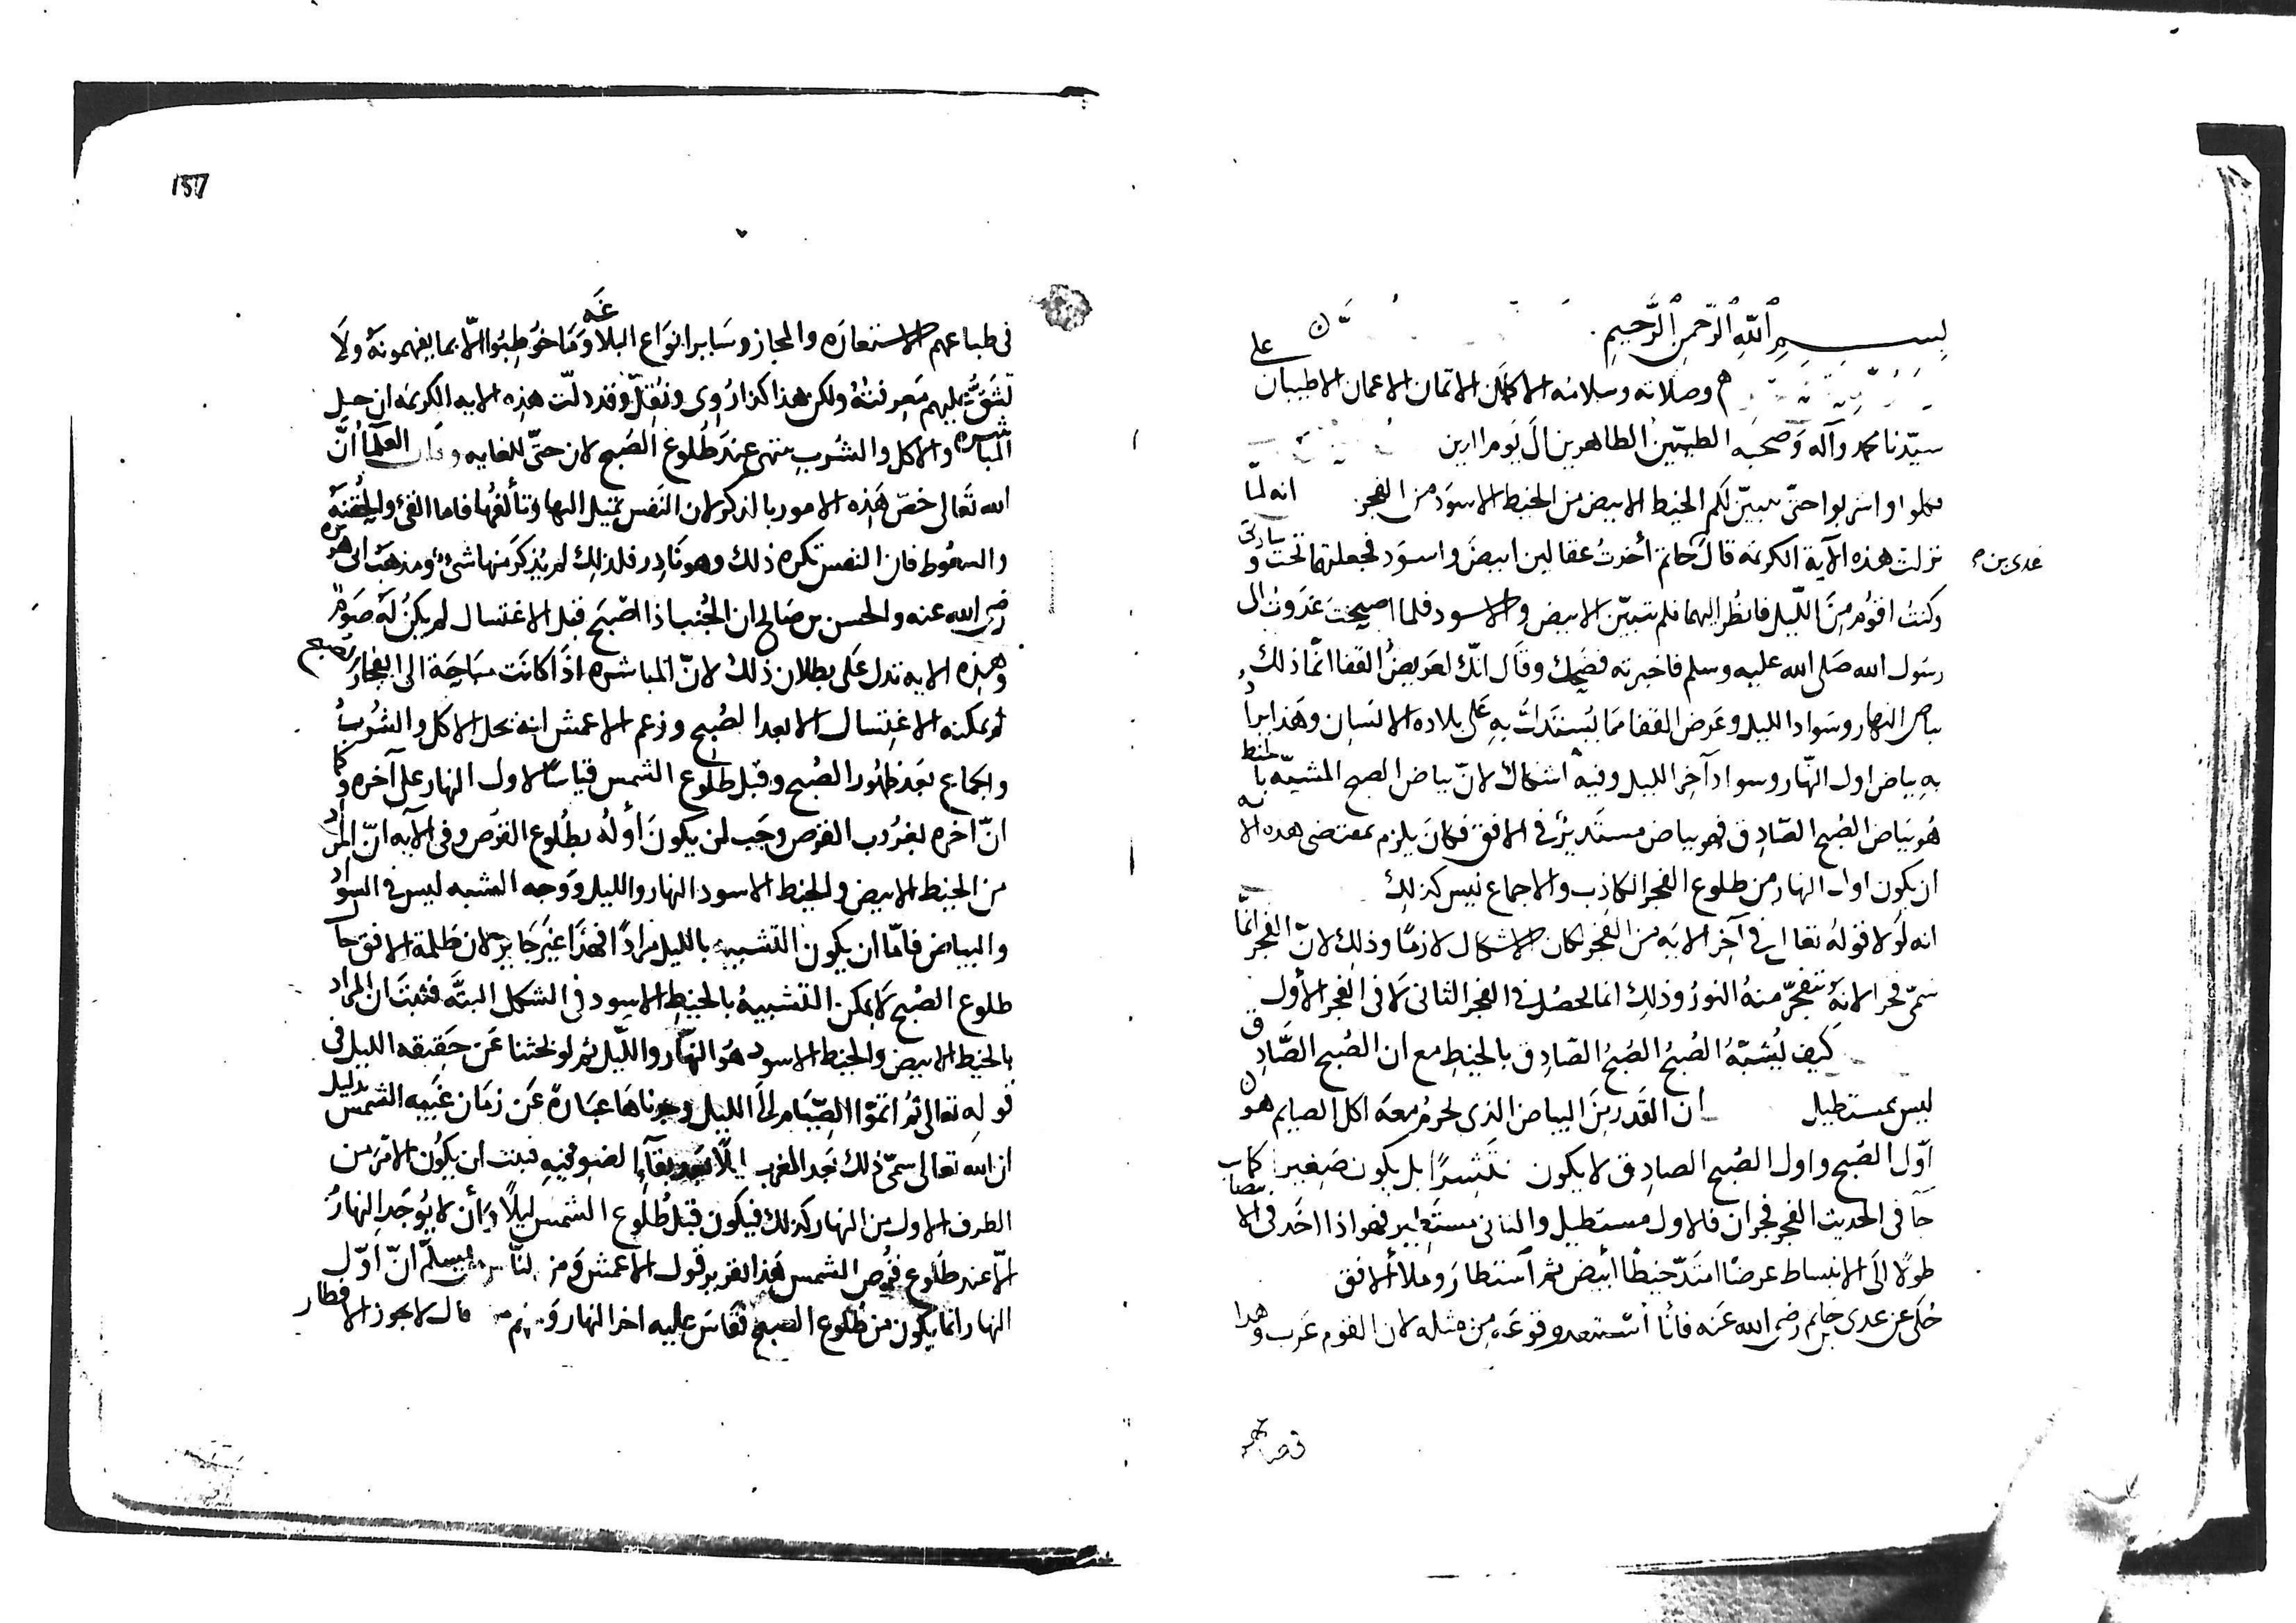 بسم الله الرحمن الرحيم
وصلاته وسلامه الاكملان الاتمان الاعمان الاطيبان على
سيدنا محمد وآله وصحبه الطيبين الطاهرين الى يوم الدين
فكلوا واشربوا حتى يتبين لكم الخيط الابيض من الخيط الاسود من الفجر انه لما
نزلت هذه الآية الكريمة قال حاتم أخذت عقالين ابيض واسود فجعلتهما تحت وسادتى
عدى بن
وكنت اقوم من الليل فانظر اليهما فلم يتبين الابيض والاسود فلما اصبحت غدوت الى
رسول الله صلى الله عليه وسلم فاخبرته فضحك وقال انك لعريض القفا انما ذلك
بياض النهار وسواد الليل وعرض القفا مما يستدل به على بلادة الانسان وهذا يراد
به بياض اول النهار وسواد آخر الليل وفيه اشكال لان بياض الصبح المشبه بالخيط
هو بياض الصبح الصادق فهو بياض مستدير فى الافق فكان يلزم بمقتضى هذه الايه
ان يكون اول النهار من طلوع الفجر الكاذب والاجماع ليس كذلك
انه لولا قوله تعالى فى آخر الايه من الفجر لكان الاشكال لازما وذلك لان الفجر انما
سمى فجرا لانه يتفجر منه النور وذلك انما يحصل فى الفجر الثانى لا فى الفجر الأول
كيف يشبه الصبح الصبح الصادق بالخيط مع ان الصبح الصادق
ليس بمستطيل ان القدر من البياض الذى يحرم معه اكل الصايم هو
اول الصبح واول الصبح الصادق لا يكون منتشرا بل يكون صغيرا كما
جا فى الحديث الفجر فجران فالاول مستطيل والثانى مستطير فهو اذا اخذ فى الا
طولا الى الانبساط عرضا امتد خيطا أبيض ثم استطار وملأ الافق
حكى عن عدى بن حاتم رضى الله عنه فأنا استبعد وقوعه من مثله لان القوم عرب وهذا
157
فى طباعهم الاستعاره والمجاز وساير انواع البلاغه وما خوطبوا الا بما يفهمونه ولا
تشق عليهم معرفته ولكن هذا كذا روى ونقل وقد دلت هذه الايه الكريمه ان حل
المباشره والاكل والشرب ينتهى عند طلوع الصبح لان حتى للغايه وقال العلما أن
الله تعالى خص هذه الامور بالذكر لان النفس تميل اليها وتألفها فاما القئ والحقنة
والسعوط فان النفس تكره ذلك وهو نادر فلذلك لم يذكر منها شئ ومذهب ابى هريره
رضى الله عنه والحسن بن صالح ان الجنب اذا اصبح قبل الاغتسال لم يكن له صوم
وهذه الايه تدل على بطلان ذلك لان المباشره اذا كانت مباحة الى انفجار الصبح
لم يمكنه الاغتسال الا بعد الصبح وزعم الاعمش انه يحل الاكل والشرب
والجماع بعد ظهور الصبح وقبل طلوع الشمس قياسا لاول النهار على آخره وكما
ان اخره بغروب القرص وجب ان يكون أوله بطلوع القرص وفى الآيه ان المراد
من الخيط الابيض والخيط الاسود النهار والليل ووجه الشبه ليس فى السواد
والبياض فاما ان يكون التشبيه بالليل مرادا فهذا غير جايز لان ظلمة الافق حال
طلوع الصبح لا يمكن التشبيه بالخيط الاسود فى الشكل البته فثبت ان المراد
بالخيط الابيض والخيط الاسود هو النهار والليل ثم لو بحثنا عن حقيقه الليل فى
قوله تعالى ثم اتموا الصيام الى الليل وجدناها عبارة عن زمان غيبه الشمس بدليل
ان الله تعالى سمى ذلك بعد المغرب ليلا بعد بقآء الضو فيه فثبت ان يكون الامر من
الطرف الاول من النهار كذلك فيكون قبل طلوع الشمس ليلا وأن لا يوجد النهار
الا عند طلوع قرص الشمس هذا تقرير قول الاعمش ومن الناس من يسلم ان اول
النهار انما يكون من طلوع الصبح فقاس عليه اخر النهار ومنهم من قال لا يجوز الافطار